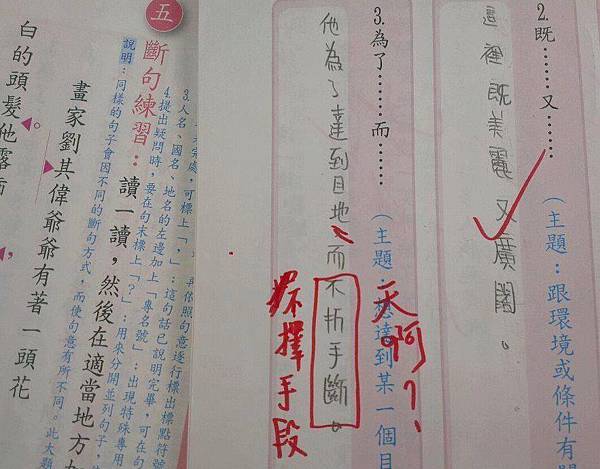 2.既……又……
(主題：跟環境或條件有關
這裡既美麗又廣闊。
3.為了……而……
(主題：想達到某一個目
他為了達到目地而不折手斷。
天啊！
不擇手段
3.人名、國名、地名的左邊加上「專名號」；出現特殊專用
4.提出疑問時，要在句末標上「？」；用來分開並列句子，
五
斷句練習：讀一讀，然後在適當地方加
說明：同樣的句子會因不同的斷句方式，而使句意有所不同。此大題
畫家劉其偉爺爺有著一頭花
白的頭髮他露